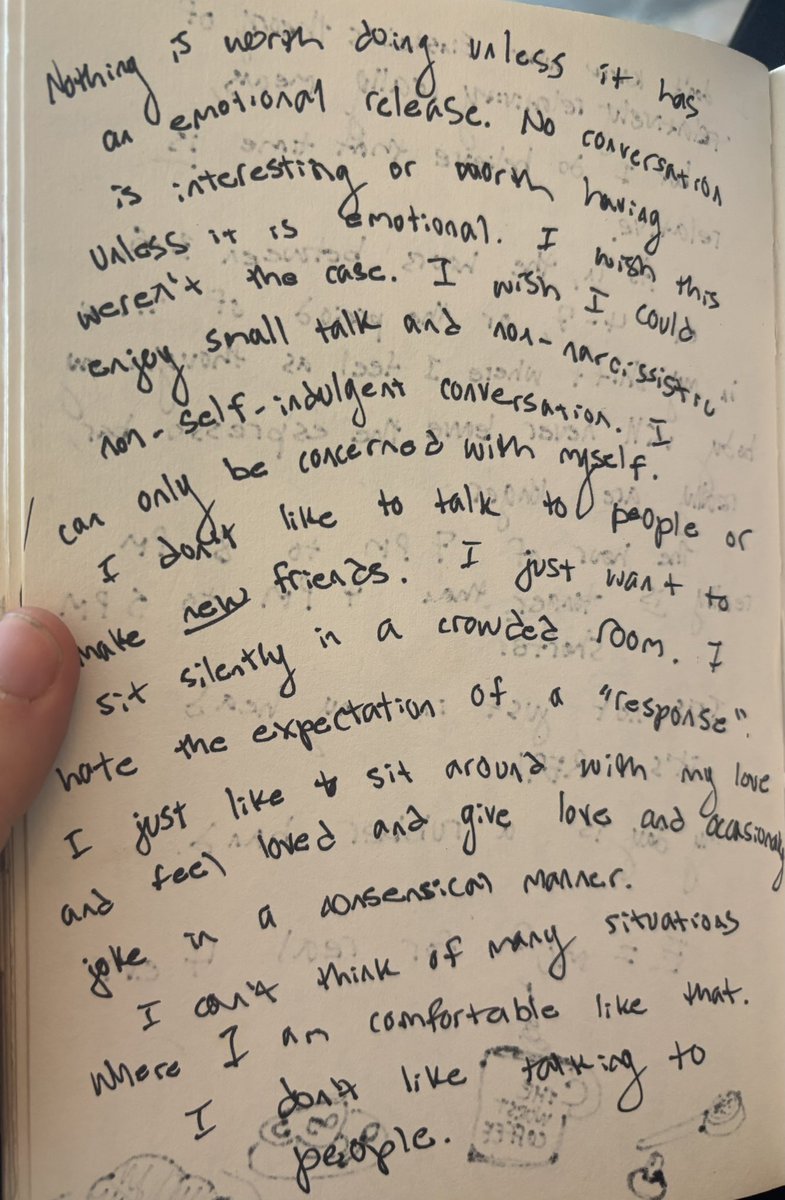 Nothing is worth doing unless it has
an emotional release. No conversation
is interesting or worth having
unless it is emotional. I wish this
weren't the case. I wish I could
enjoy small talk and non-narcissistic
non-self-indulgent conversation. I
can only be concerned with myself.
I don't like to talk to people or
make new friends. I just want to
sit silently in a crowded room. I
hate the expectation of a "response".
I just like to sit around with my love
and feel loved and give love and occasionaly
joke in a nonsensical manner.
I can't think of many situations
where I am comfortable like that.
I don't like talking to
people.